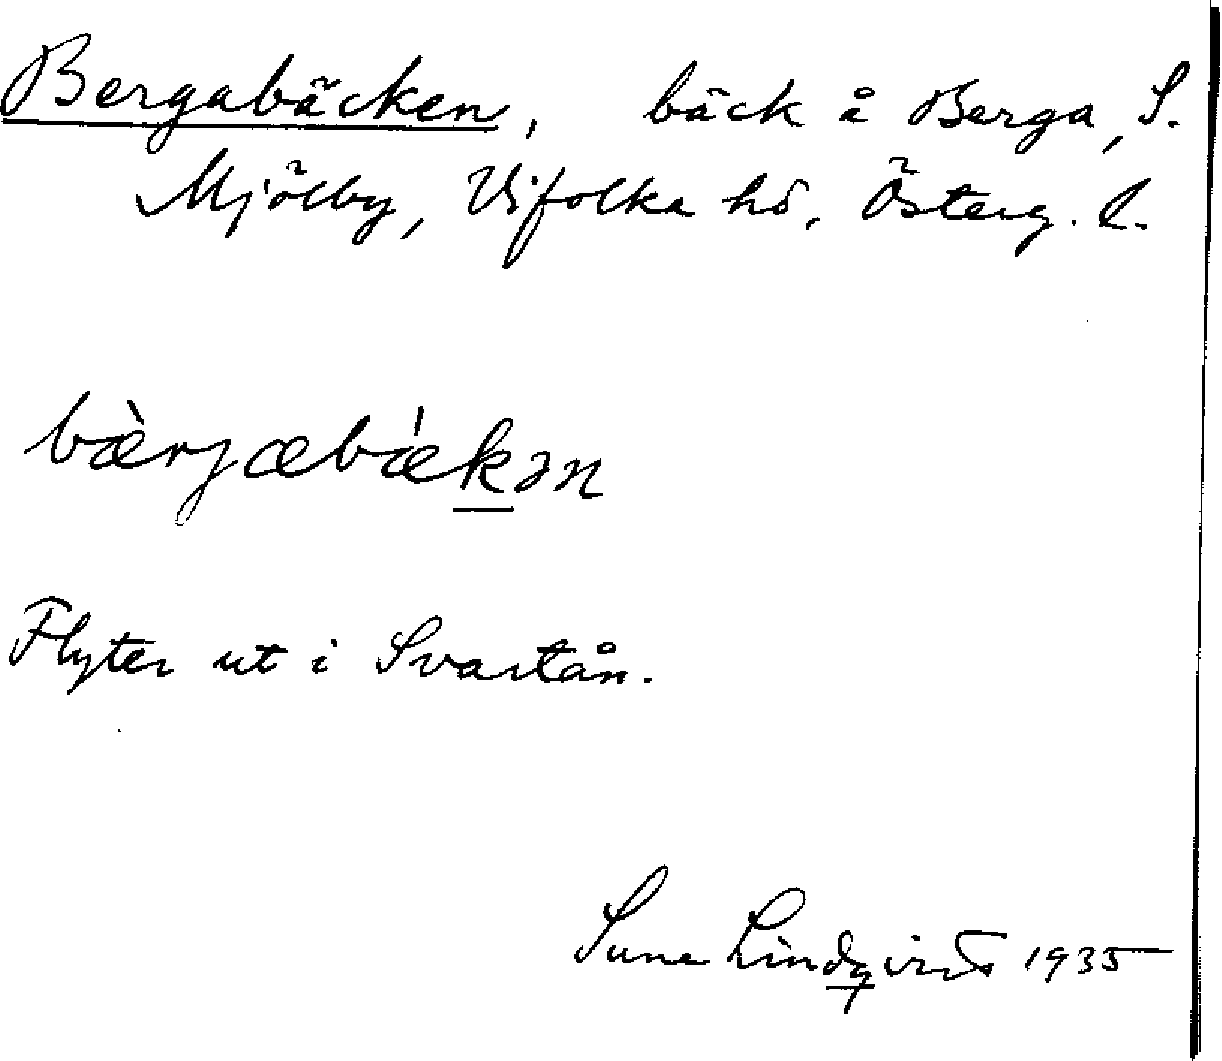 Bergabäcken, bäck å Berga, S.
Mjölby, Vifolka hd, Österg. l.
bæ̀rjæbǽkən
Flyter ut i Svartån.
Sune Lindqvist 1935